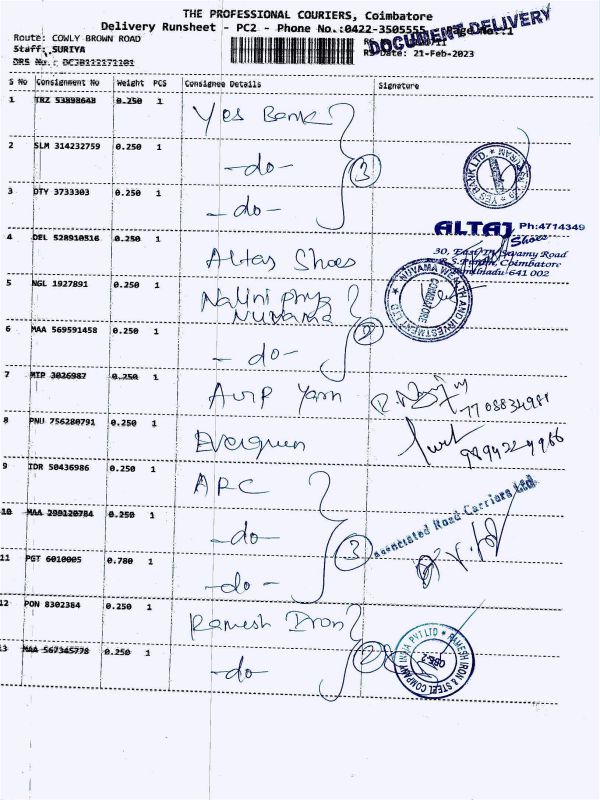 THE PROFESSIONAL COURIERS, Coimbatore
Delivery Runsheet - PC2 - Phone No.:0422-3505555 Page No.:1
DOCUMENT DELIVERY
Route: COWLY BROWN ROAD
Staff: SURIYA
RS Date: 21-Feb-2023
DRS No.: DCJB112171101
S No Consignment No Weight PCS Consignee Details Signature
1 TRZ 53898648 0.250 1 Yes Bank
2 SLM 314232759 0.250 1 -do- 3
YES BANK LTD.
3 DTY 3733303 0.250 1 -do-
ALTAJ Shoes Ph:4714349
4 DEL 528910516 0.250 1 Altaj Shoes
R.S. Puram, Coimbatore
Tamilnadu-641 002
5 NGL 1927891 0.250 1 Nalini Phya
Nuvama
NUVAMA WEALTH AND INVESTMENT LTD
COIMBATORE
6 MAA 569591458 0.250 1 -do- 2
7 MIP 3026987 0.250 1 Yarn
8 PNU 756280791 0.250 1 Evergreen
9 IDR 50436986 0.250 1 ARC
Associated Road Carriers Ltd.
10 MAA 299120784 0.250 1 -do-
3
11 PGT 6010005 0.780 1 -do-
12 PON 8302384 0.250 1 Ramesh Iron
13 MAA 567345778 0.250 1 -do- 2
RAMESH IRON & STEEL COMPANY INDIA PVT LTD
CBE-2